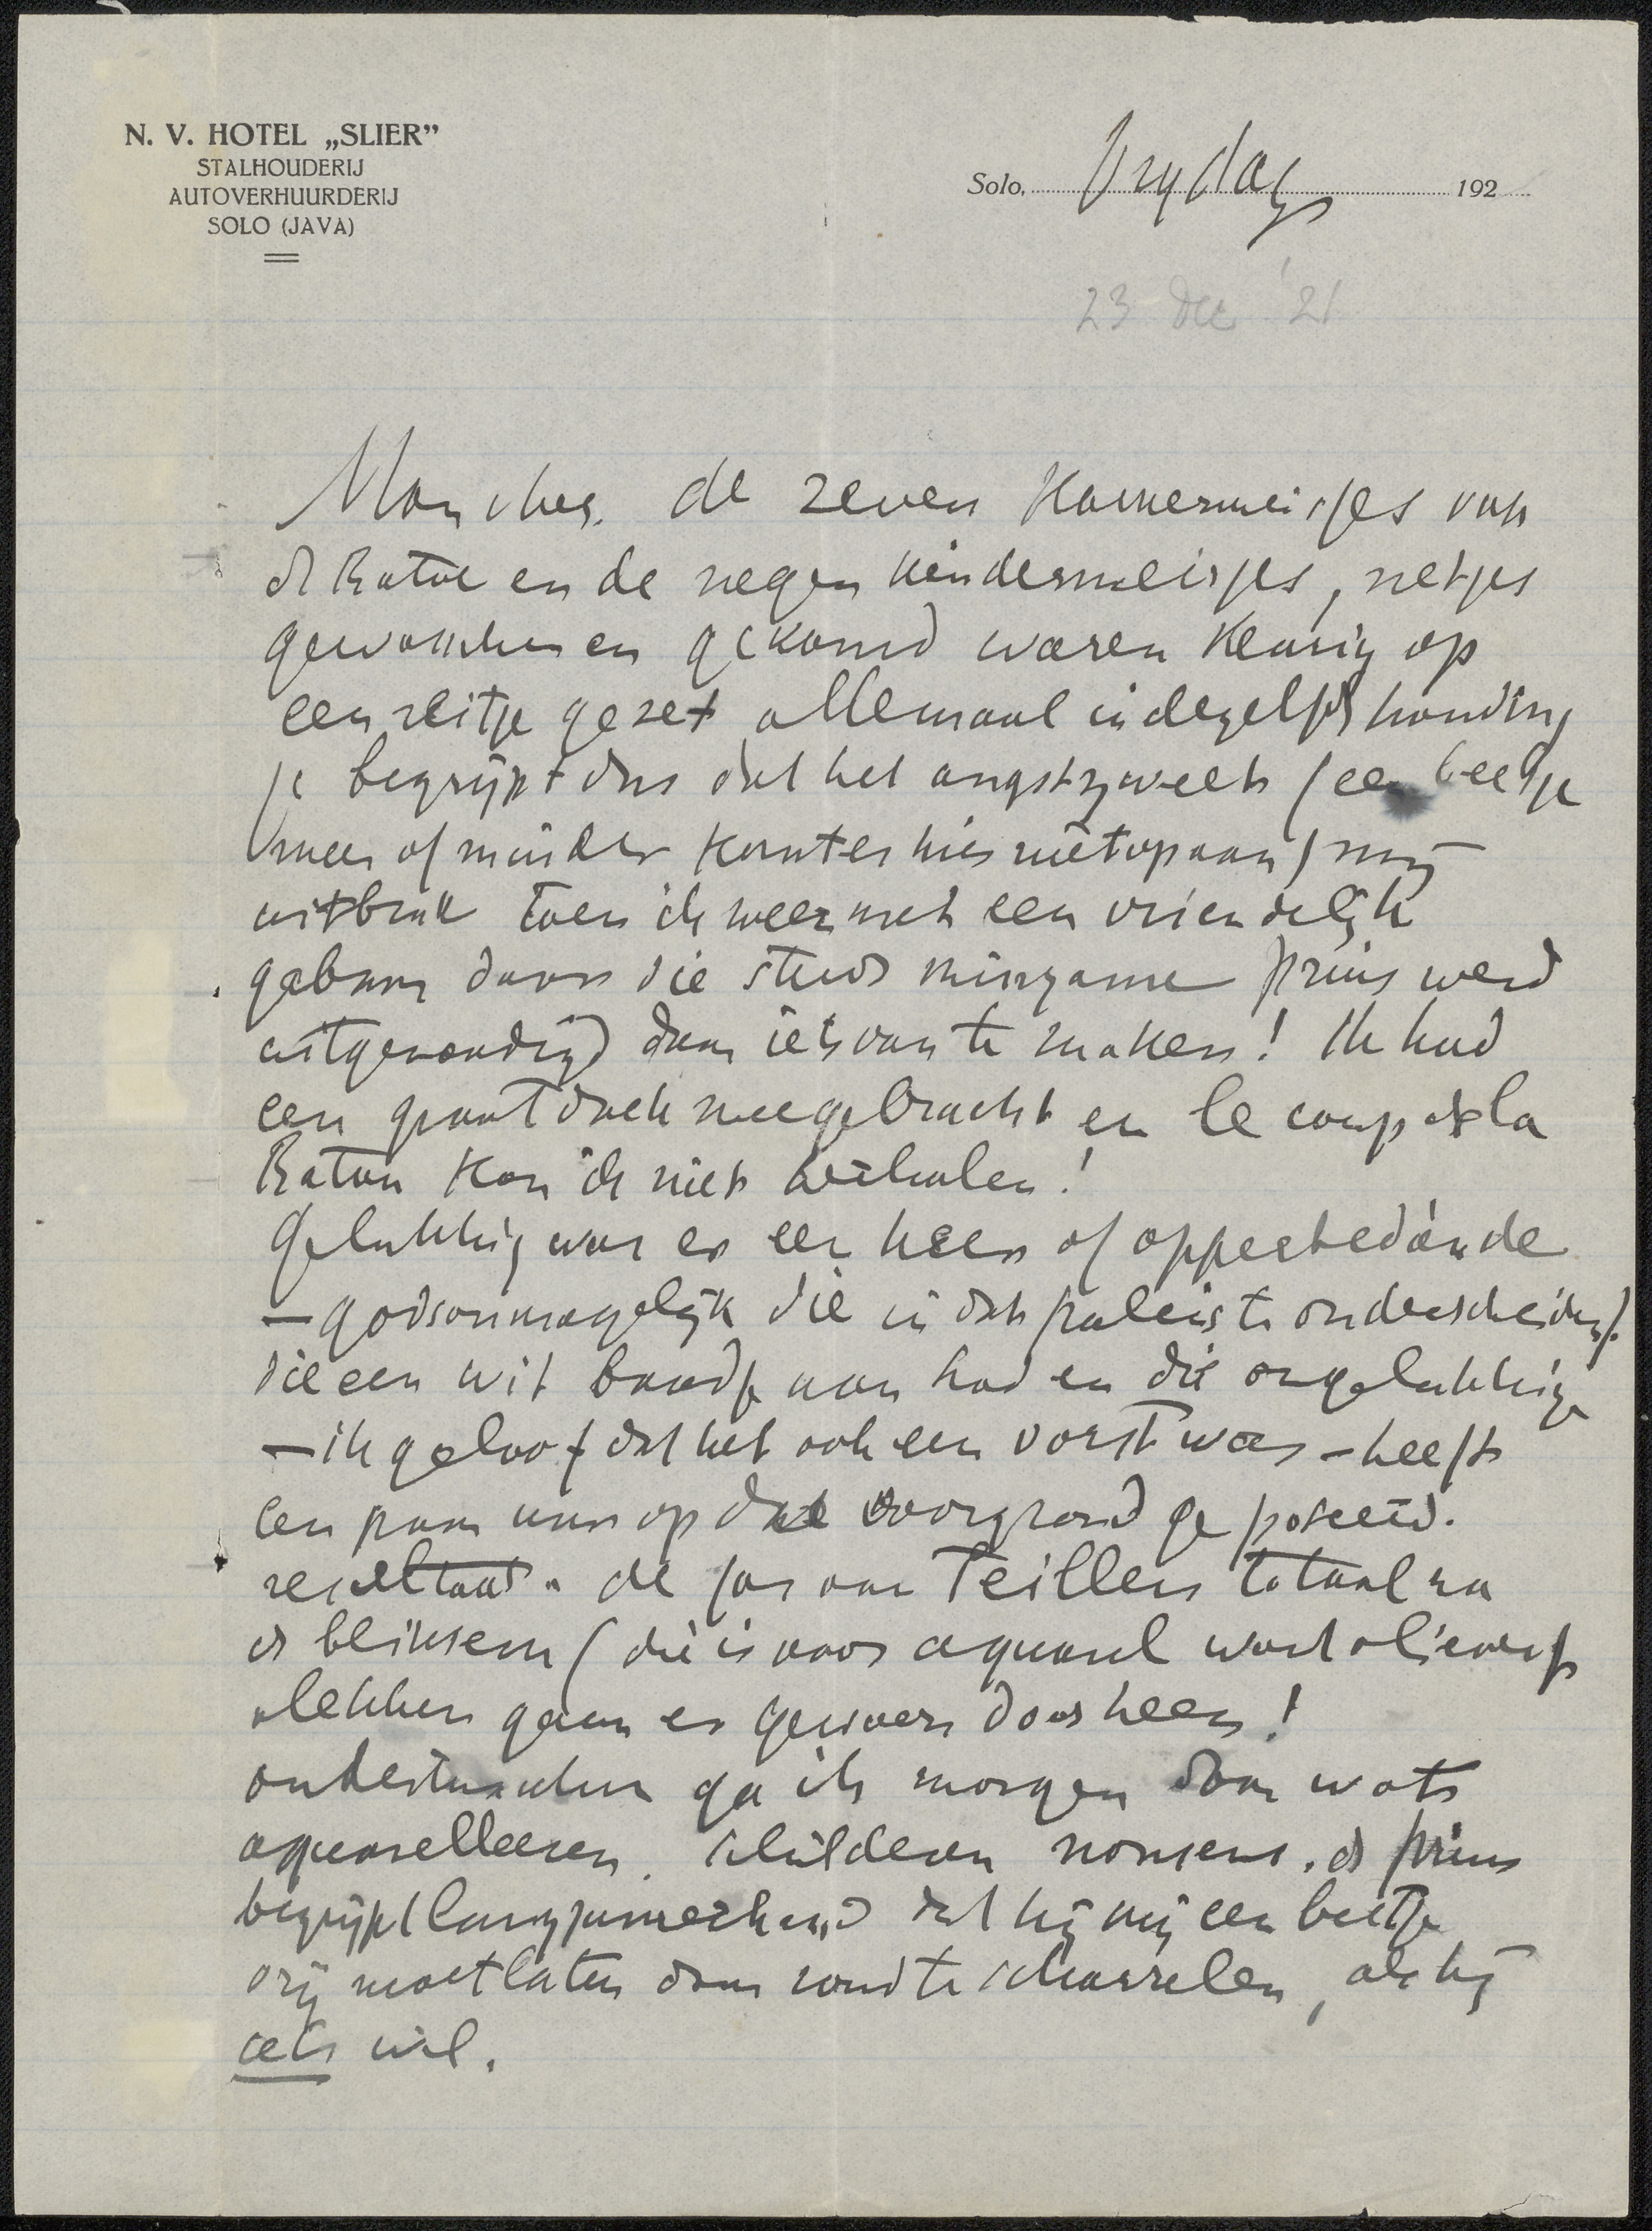 N. V. HOTEL „SLIER”
STALHOUDERIJ
AUTOVERHUURDERIJ
SOLO (JAVA)
Solo, Vrydag 192
23 Dec '21
Mon cher. de zeven Kamermeisjes van
de Ratoe en de negen kindermeisjes, netjes
gewasschen en gekamd waren keurig op
een reitje gezet allemaal in dezelfde houding
je begrijpt dus dat het angstzweet (een beetje
meer of minder komt er hier niet op aan) mij
uitbrak toen ik weer met een vriendelijk
gebaar door die steeds minzame prins werd
uitgenoodigd daar iets van te maken! Ik had
een groot doek meegebracht en le coup de la
Ratou kon ik niet herhalen!
Gelukkig was er een heer of opperbediende
– godsonmogelijk die in dat paleis te onderscheiden!
die een wit baadje aan had en die ongelukkige
– ik geloof dat het ook een vorst was – heeft
een paar uur op den voorgrond geposeerd.
resultaat. de jas van Teillers totaal na
de bliksem (die is voor aquarel want olieverf
vlekken gaan er gewoon doorheen!
onbestorven ga ik morgen daar wat
aquarelleeren. schilderen nonsens. de prins
begrijpt langzamerhand dat hij mij een beetje
vrij moet laten daar rond te scharrelen, als hij
iets wil.